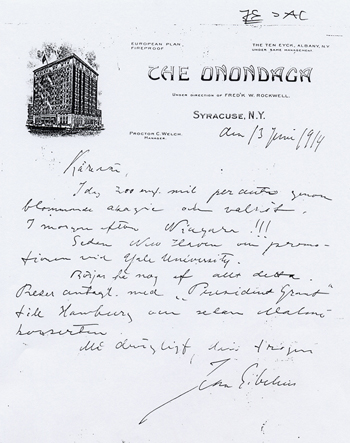 EUROPEAN PLAN
FIREPROOF
THE TEN EYCK, ALBANY, N.Y.
UNDER SAME MANAGEMENT
THE ONONDAGA
UNDER DIRECTION OF FRED'K W. ROCKWELL.
SYRACUSE, N.Y.
PROCTOR C. WELCH
MANAGER
den 13 Juni 1914
I dag 200 eng. mil per auto genom
blommande och
I morgon afton Niagara !!!
Sedan New Haven
vid Yale University.
Börjar få nog af allt detta.
Reser antagl. med „President Grant"
till Hamburg
konserten.
Jean Sibelius